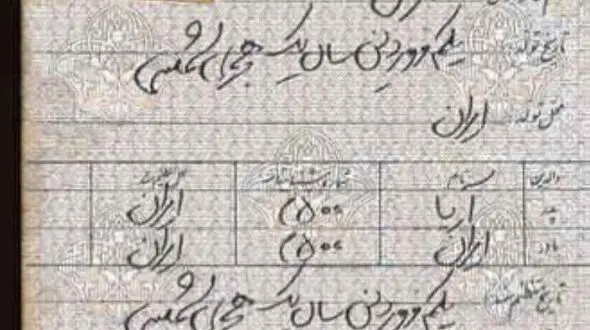 تاریخ تولد: یکم فروردین سال یک هجری شمسی
محل تولد: ایران
والدین نام شماره شناسنامه محل صدور
پدر آریا ۲۵۰۰ ایران
مادر ایران ۲۵۰۰ ایران
تاریخ تنظیم سند: یکم فروردین سال یک هجری شمسی